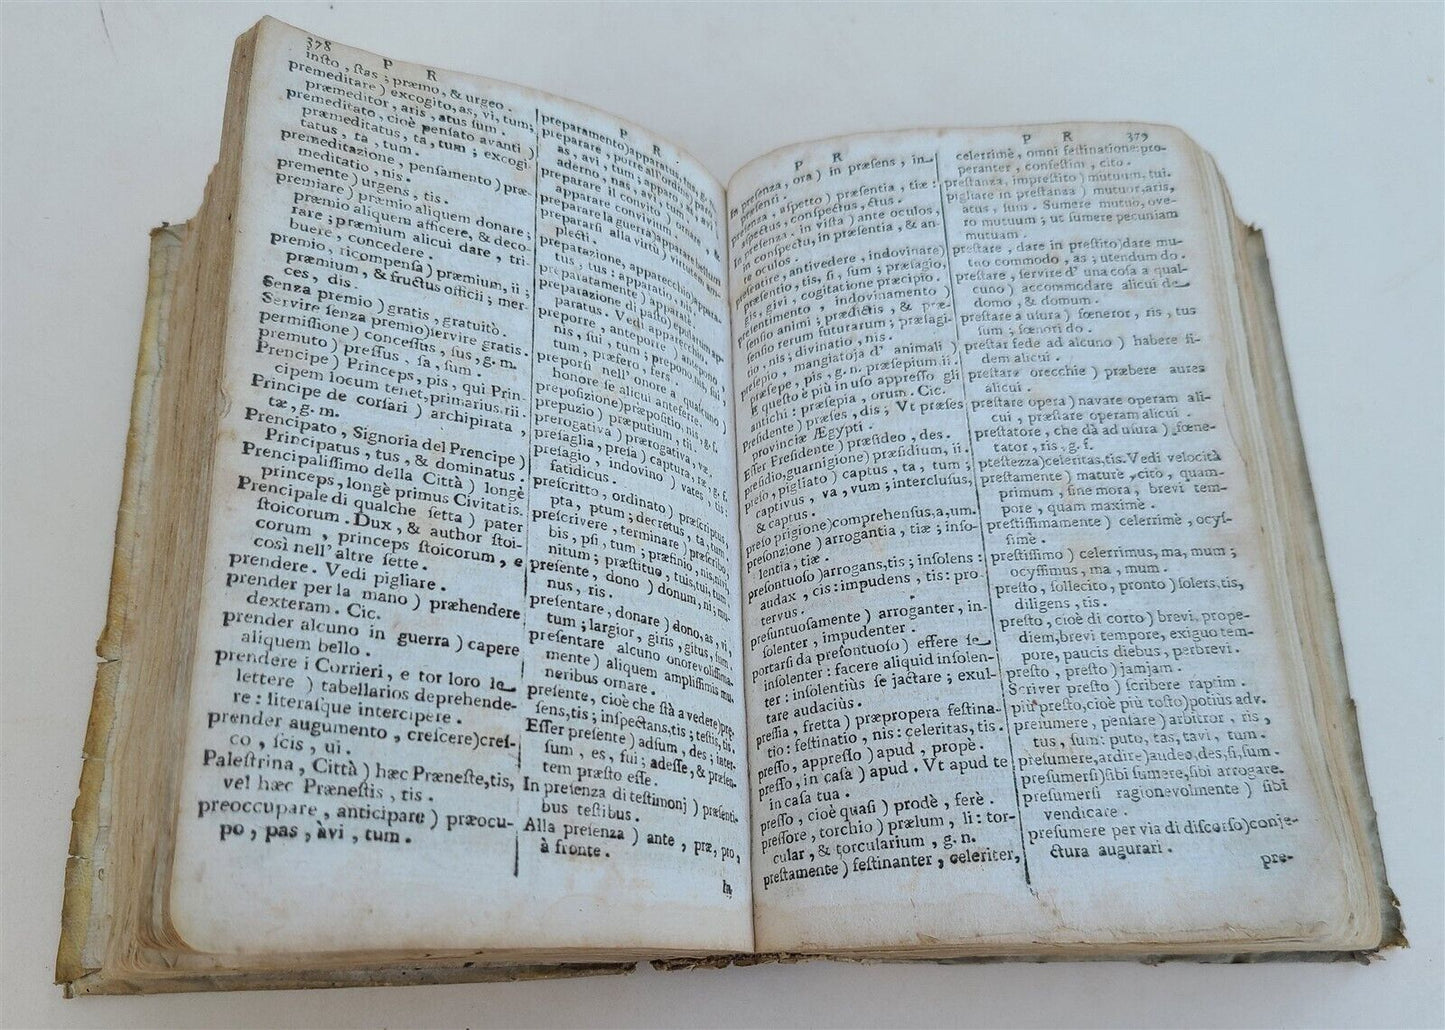 378
P R
insto, stas; præmo, & urgeo.
premeditare) excogito, as, vi, tum;
præmeditor, aris, atus sum.
premeditato, cioè pensato avanti)
præmeditatus, ta, tum; excogi-
tatus, ta, tum.
premeditazione, pensamento) præ-
meditatio, nis.
premente) urgens, tis.
premiare) præmio aliquem donare;
præmio aliquem afficere, & deco-
rare; præmium alicui dare, tri-
buere, concedere.
premio, ricompensa) præmium, ii;
præmium, & fructus officii; mer-
ces, dis.
Senza premio) gratis, gratuitò.
Servire senza premio) servire gratis.
permissione) concessus, sus, g. m.
premuto) pressus, sa, sum.
Prencipe) Princeps, pis, qui Prin-
cipem locum tenet, primarius, rii.
Principe de corsari) archipirata,
tæ, g. m.
Prencipato, Signoria del Prencipe)
Principatus, tus, & dominatus.
Prencipalissimo della Città) longè
princeps, longè primus Civitatis.
Prencipale di qualche setta) pater
stoicorum. Dux, & author stoi-
corum, princeps stoicorum, e
così nell' altre sette.
prendere. Vedi pigliare.
prender per la mano) præhendere
dexteram. Cic.
prender alcuno in guerra) capere
aliquem bello.
prendere i Corrieri, e tor loro le
lettere) tabellarios deprehende-
re: literasque intercipere.
prender augumento, crescere) cres-
co, scis, vi.
Palestrina, Città) hæc Præneste, tis,
vel hæc Prænestis, tis.
preoccupare, anticipare) præocu-
po, pas, àvi, tum.
P R
preparamento) apparatus, tus, g. m.
preparare, porre all'ordine) paro,
as, avi, tum; apparo, as;
aderno, nas, avi, tum.
preparare il convito) ornare, &
apparare convivium.
preparare la guerra) apparare bellum
prepararsi alla virtù) virtutem am-
plecti.
preparazione, apparecchio) appara-
tus, tus: apparatio, nis.
preparatamente) apparatè.
preparazione di pasto) epularum ap-
paratus. Vedi apparecchio.
preporre, anteporre) antepono,
nis, sui, tum; prepono, nis, sui,
tum, præfero, fers.
preporsi nell' onore a qualcuno)
honore se alicui anteferre.
preposizione) præpositio, nis, g. f.
prepuzio) præputium, tii.
prerogativa) prærogativa, væ, g. f.
presaglia, presa) captura, ræ, g. f.
presagio, indovino) vates, tis:
fatidicus.
prescritto, ordinato) præscriptus,
pta, ptum; decretus, ta, tum.
prescrivere, terminare) præscribo,
bis, psi, tum; præfinio, nis, nivi,
nitum; præstituo, tuis, tui, tum.
presente, dono) donum, ni; mu-
nus, ris.
presentare, donare) dono, as, vi,
tum; largior, giris, gitus, sum.
presentare alcuno onorevolissima-
mente) aliquem amplissimis mu-
neribus ornare.
presente, cioè che stà a vedere) præ-
sens, tis; inspectans, tis; testis, tis.
Esser presente) adsum, des; inter-
sum, es, fui; adesse, & præsen-
tem præsto esse.
In presenza di testimonj) præsenti-
bus testibus.
Alla presenza) ante, præ, pro,
à fronte.
In
P R
In presenza, ora) in præsens, in
presenti.
presenza, aspetto) præsentia, tiæ:
aspectus, conspectus, ctus.
In presenza, in vista) ante oculos,
in conspectu, in præsentia, & an-
te oculos.
presentire, antivedere, indovinare)
præsentio, tis, si, sum; præsagio,
gis, givi, cogitatione præcipio.
presentimento, indovinamento)
sensio animi; prædictis, & præ-
sensio rerum futurarum; præsagi-
tio, nis; divinatio, nis.
presepio, mangiatoja d' animali)
præsepe, pis, g. n. præsepium, ii.
E questo è più in uso appresso gli
antichi: præsepia, orum. Cic.
Presidente) præses, dis; Vt præses
provinciæ Ægypti.
Esser Presidente) præsideo, des.
presidio, guarnigione) præsidium, ii.
preso, pigliato) captus, ta, tum;
captivus, va, vum; interclusus,
& captus.
preso prigione) comprehensus, a, um.
presonzione) arrogantia, tiæ; inso-
lentia, tiæ.
presontuoso) arrogans, tis; insolens:
audax, cis: impudens, tis: pro-
tervus.
presuntuosamente) arroganter, in-
solenter, impudenter.
portarsi da presontuoso) efferre se
insolenter: facere aliquid insolen-
ter: insolentiùs se jactare; exul-
tare audaciùs.
pressia, fretta) præpropera festina-
tio: festinatio, nis: celeritas, tis.
presso, appresso) apud, propè.
presso, in casa) apud. Vt apud te
in casa tua.
presso, cioè quasi) prodè, ferè.
pressore, torchio) prælum, li: tor-
cular, & torcularium, g. n.
prestamente) festinanter, celeriter,
P R 379
celerrimè, omni festinatione: pro-
peranter, confestim, cito.
prestanza, imprestito) mutuum, tui.
pigliare in prestanza) mutuor, aris,
atus, sum. Sumere mutuo, ove-
ro mutuum; ut sumere pecuniam
mutuam.
prestare, dare in prestito) dare mu-
tuo commodo, as; utendum do.
prestare, servire d' una cosa a qual-
cuno) accommodare alicui de
domo, & domum.
prestare a usura) fœneror, ris, tus
sum, fœnori do.
prestar fede ad alcuno) habere fi-
dem alicui.
prestare orecchie) præbere aures
alicui.
prestare opera) navare operam ali-
cui, præstare operam alicui.
prestatore, che dà ad usura) fœne-
tator, ris, g. f.
prestezza) celeritas, tis. Vedi velocità
prestamente) maturè, cito, quam-
primum, sine mora, brevi tem-
pore, quam maximè.
prestissimamente) celerrimè, ocys-
simè.
prestissimo) celerrimus, ma, mum;
ocyssimus, ma, mum.
presto, sollecito, pronto) solers, tis,
diligens, tis.
presto, cioè di corto) brevi, prope-
diem, brevi tempore, exiguo tem-
pore, paucis diebus, perbrevi.
presto, presto) jamjam.
Scriver presto) scribere raptim.
più presto, cioè più tosto) potiùs adv.
presumere, pensare) arbitror, ris,
tus, sum: puto, tas, tavi, tum.
presumere, ardire) audeo, des, si, sum.
presumersi) sibi sumere, sibi arrogare.
presumersi ragionevolmente) sibi
vendicare.
presumere per via di discorso) conje-
ctura augurari.
pre-